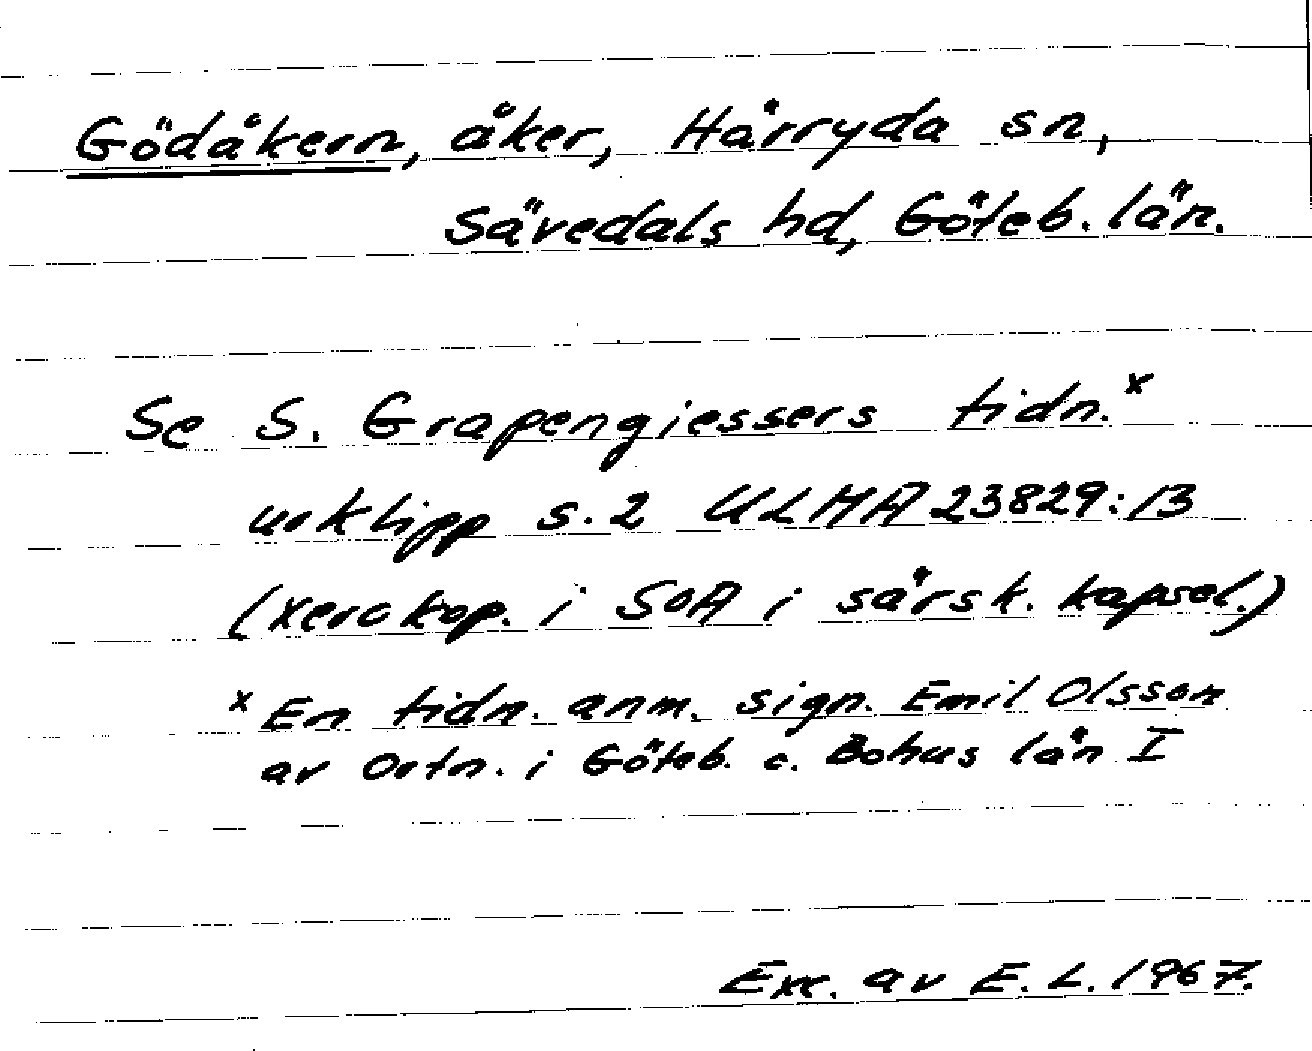 Gödåkern, åker, Härryda sn,
Sävedals hd, Göteb. län.
Se S. Grapengiessers tidn.x
urklipp s. 2 ULMA 23829:13
(xerokop. i SOA i särsk. kapsel.)
x En tidn. anm. sign. Emil Olsson
av Ortn. i Göteb. o. Bohus län I
Exc. av E. L. 1967.